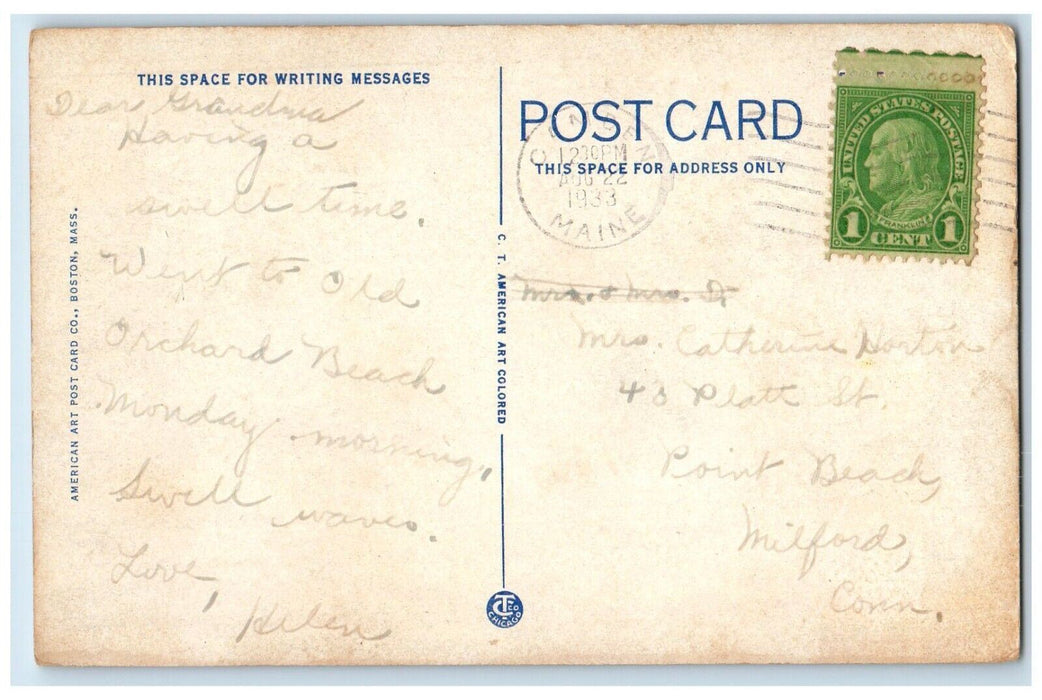 THIS SPACE FOR WRITING MESSAGES
Dear Grandma
Having a
swell time.
Went to Old
Orchard Beach
Monday morning,
Swell waves.
Love,
Helen
AMERICAN ART POST CARD CO., BOSTON, MASS.
C. T. AMERICAN ART COLORED
CT CO
CHICAGO
POST CARD
THIS SPACE FOR ADDRESS ONLY
12 30 PM
AUG 22
1933
MAINE
UNITED STATES POSTAGE
FRANKLIN
1 CENT 1
Mrs. & Mrs.
Mrs. Catherine Horton
43 Platt St.
Point Beach,
Milford,
Conn.